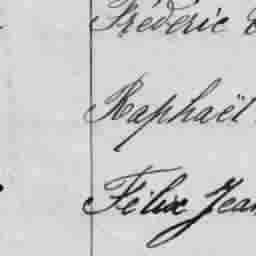 Frédéric
Raphaël
Félix Jean